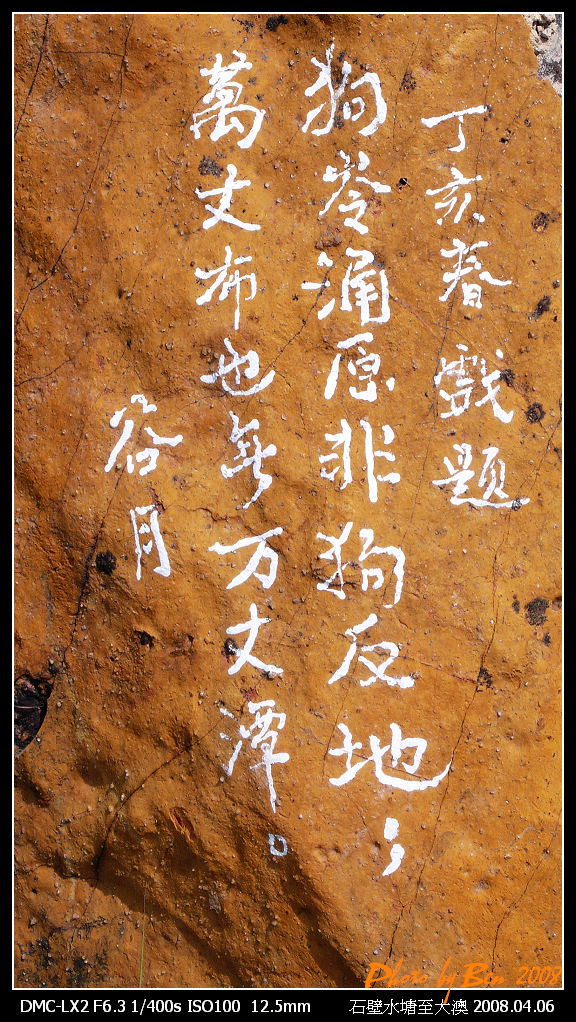 丁亥春戲题
狗岺涌原非狗反地；
萬丈布也無万丈潭。
谷月
Photo by Bin 2008
DMC-LX2 F6.3 1/400s ISO100 12.5mm 石壁水塘至大澳 2008.04.06